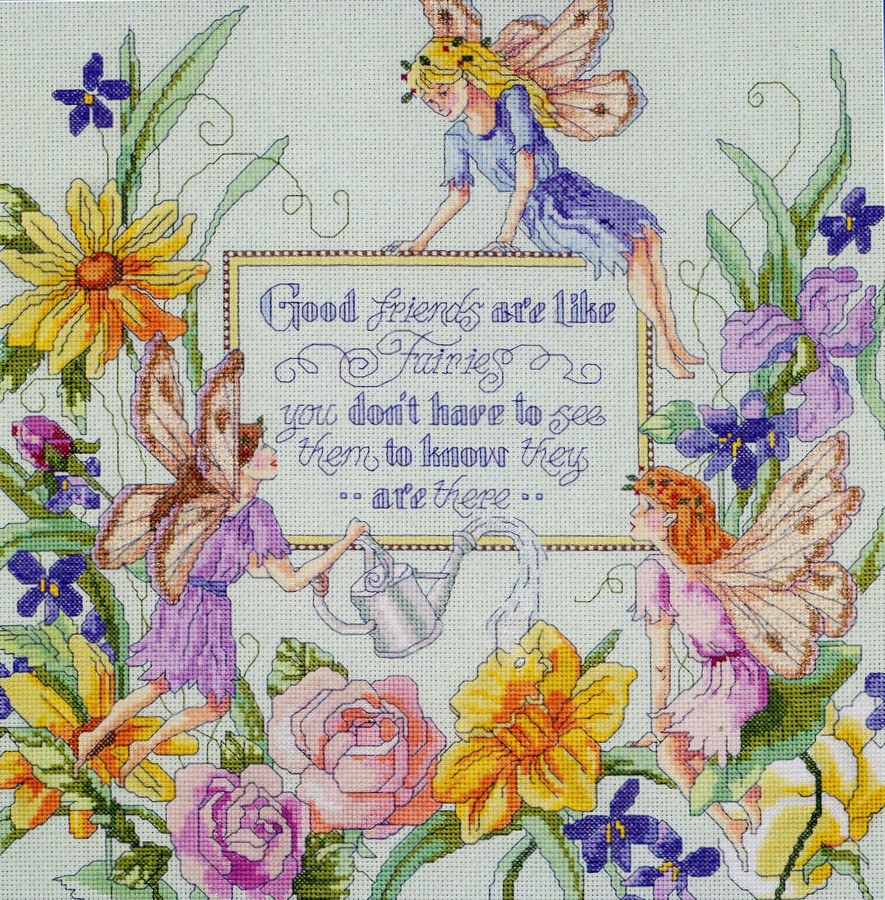 Good friends are like
Fairies
you don't have to see
them to know they
·· are there ··